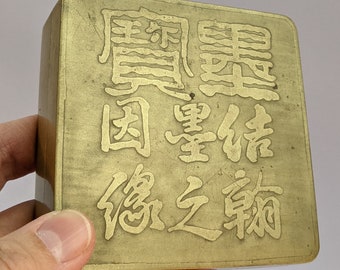 墨寶
結翰
墨之
因緣